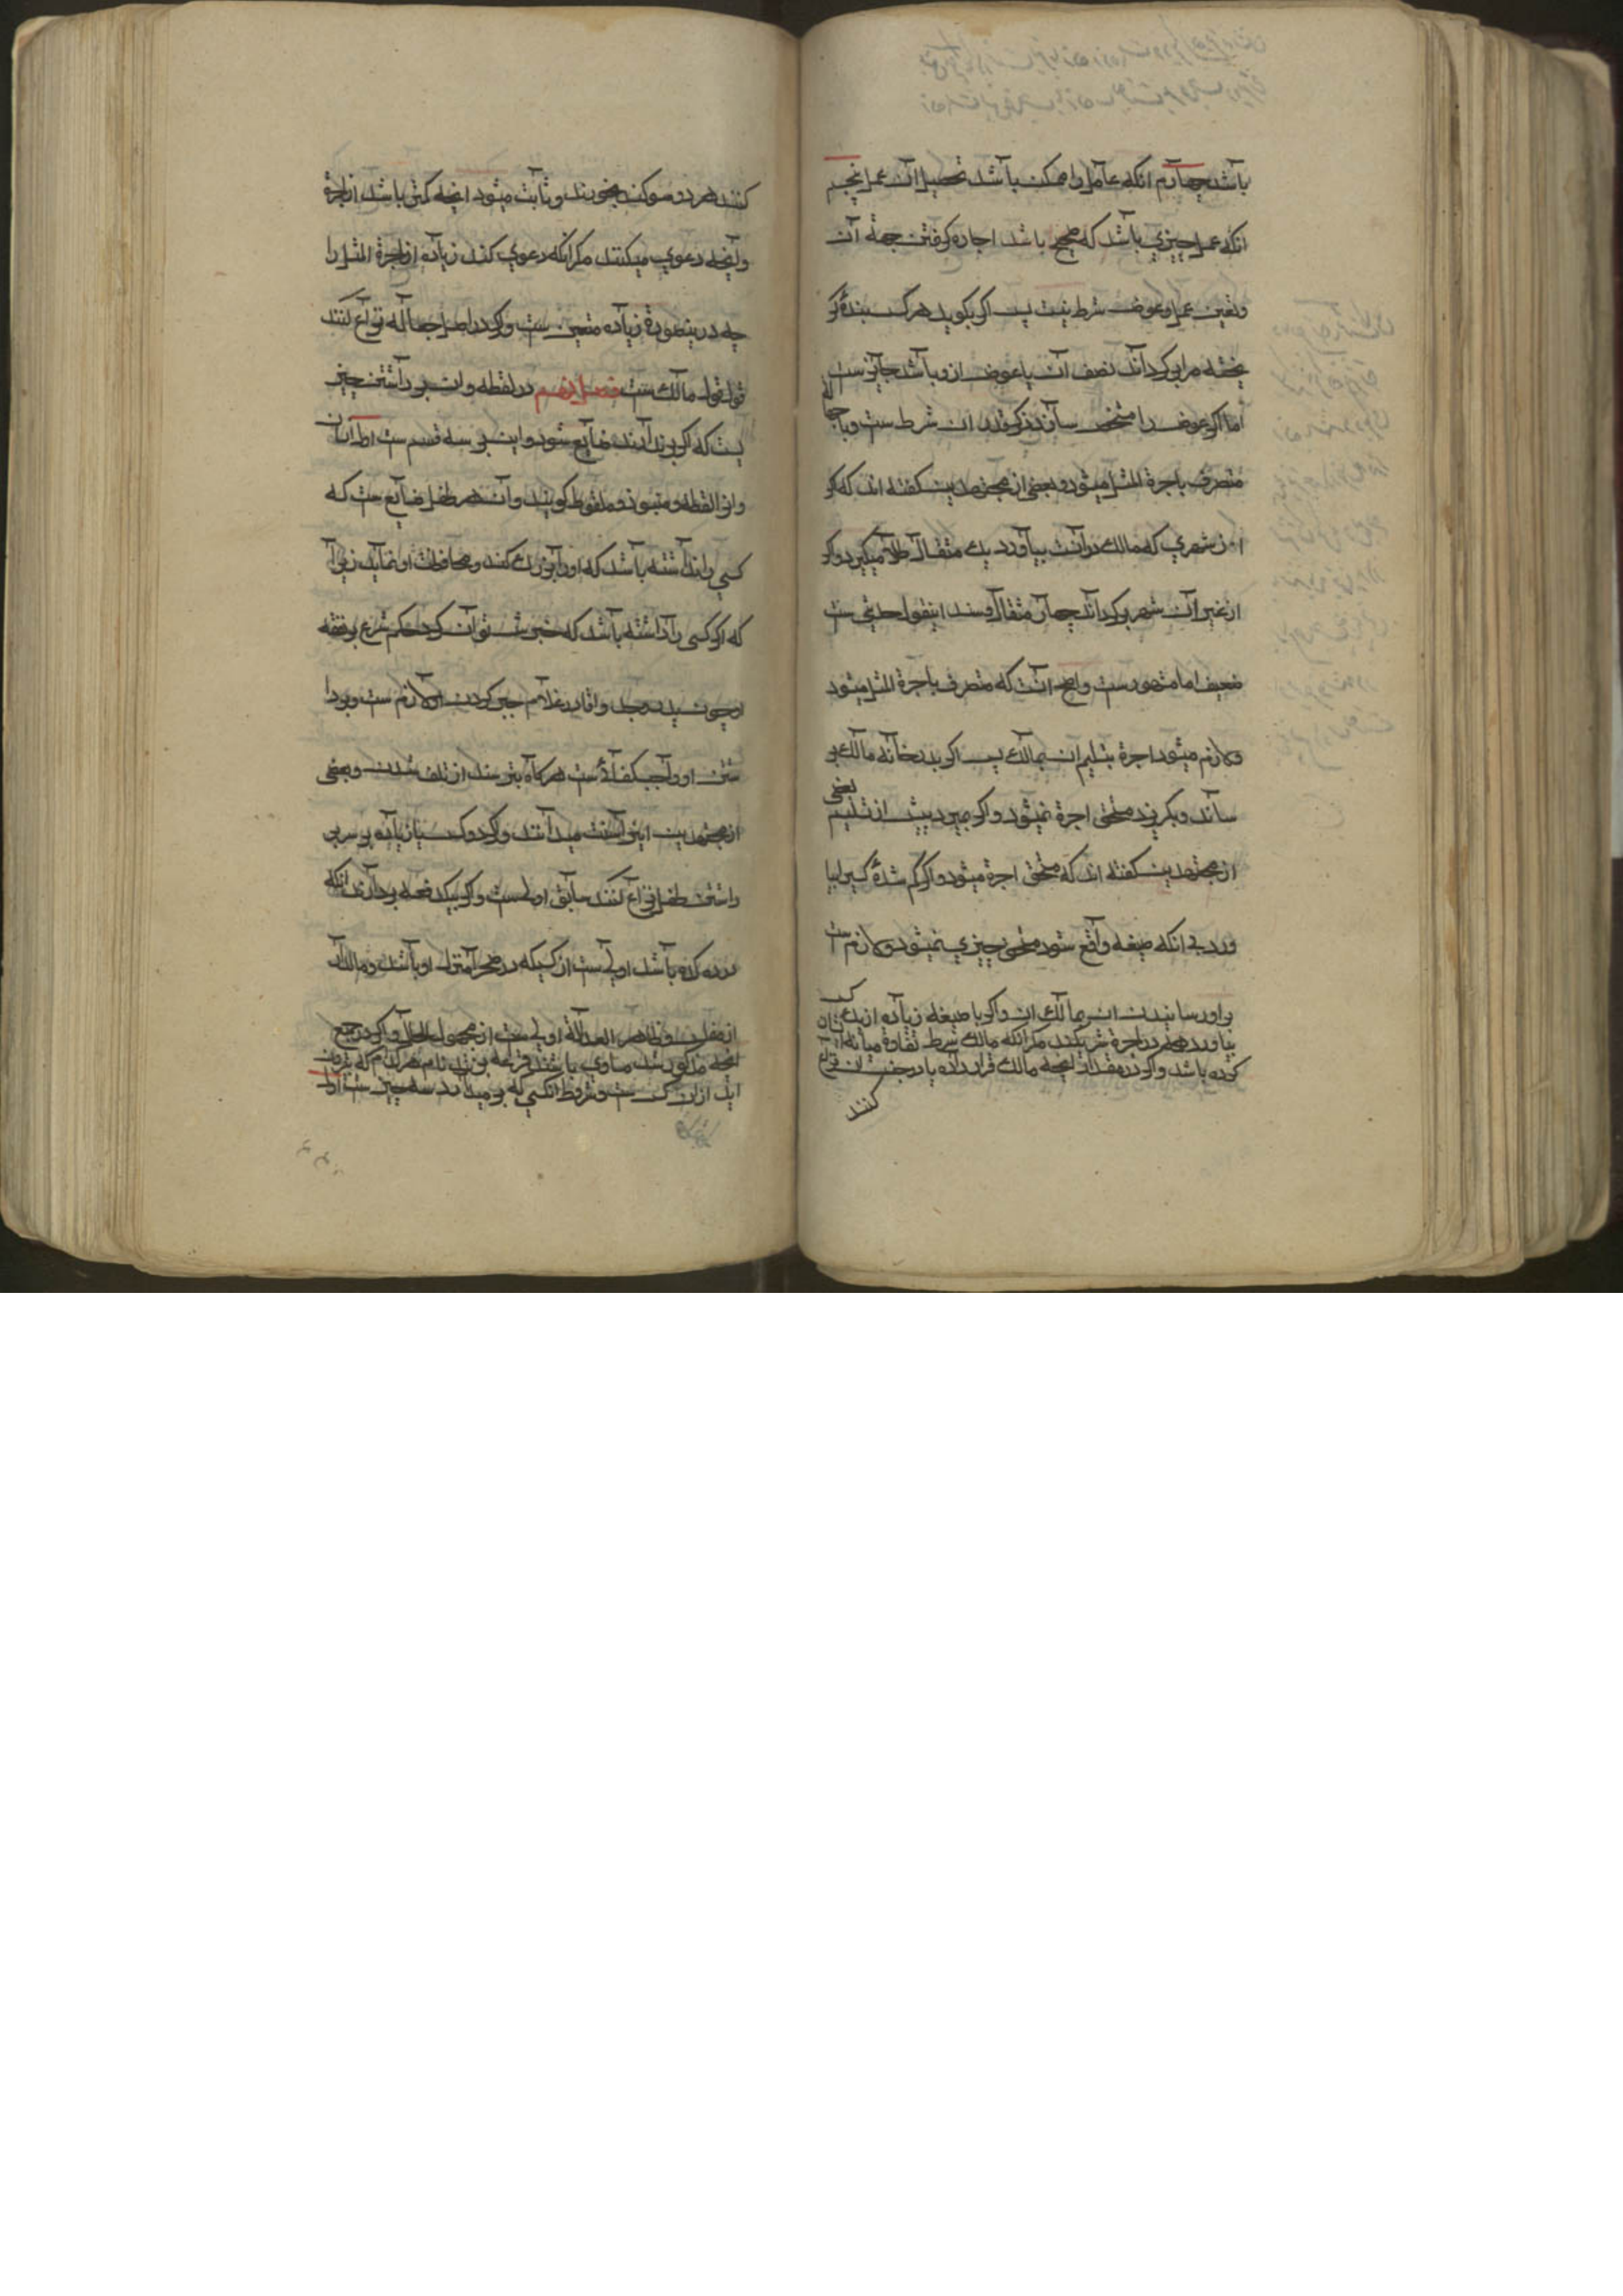 باشد چهارم انکه عامل را ممکن باشد تحصیل ان عمل پنجم
انکه عمل چیزی باشد که صحیح باشد اجاره کرفتن جهة آن
وتعین عمل وعوض شرط نیست پس اکر بکوید هر کس بنده کر
یخته مرا بر کرداند نصف ان یا عوض ازو باشد جایزست
اما اکر عوض را مشخص سازند ذکر قدر ان شرط ست وبا جها لة
متصرف باجرة المثل میشود وبعضی از مجتهدین کفته اند که اکر
از شهری که مالک در آنست بیاورد یک مثقال طلا میکیرد واکر
از غیر آن شهر بر کرداند چهار مثقال وسند اینقول حدیثی ست
ضعیف اما مشهورست واصح آنست که متصرف باجرة المثل میشود
ولازم میشود اجرة بتسلیم ان بمالک پس اکر بدر خانه مالک بر
ساند وبکریزد مستحق اجرة نمیشود واکر بمیرد پیش از تسلیم بعضی
از مجتهدین کفته اند که مستحق اجرة میشود واکر کم شده کسی را بیا
ورد بی انکه صیغه واقع شود مستحق چیزی نمیشود ولازم ست
بر او رسانیدن ان بمالک ان واکر با صیغه زیاده از یک کس ان
بیاورد همه در اجرة شریکند مکر انکه مالک شرط تفاوة میانه
کرده باشد واکر در مقدار انچه مالک قرار داده یا در جنس ان نزاع
کنند
کنند هر دو سوکند بخورند وثابت میشود انچه کمتر باشد از اجرة
وانچه دعوی میکنند مکر انکه دعوی کند زیاده از اجرة المثل را
چه درینصورة زیاده متعین ست واکر در اصل جعاله نزاع کنند
قول قول مالک ست فصل نهم در لقطه وان بر داشتن چیز
یست که اکر بر ندارند ضایع شود واین بر سه قسم ست اول انسان
وانرا لقطه ومنبوذ وملقوط کویند وآن هر طفل ضایع ست که
کسی را نداشته باشد که او را بزرک کند ومحافظت او نماید زیرا
که اکر کسی را داشته باشد که خبرش توان کرد حاکم شرع بر نفقه
او چون پدر وجد واقا در غلام جبر کردن او لازم ست وبر دا
شتن او واجب کفائیست هر کاه بترسند از تلف شدن وبعضی
از مجتهدین اینرا سنت میدانند واکر دو کس یا زیاده بر سر بر
داشتن طفل نزاع کنند سابق اولی ست واکر بیکدفعه بردارند انکه
در ده کده باشد اولی ست از کسیکه در صحرا منزل او باشد ومالدار
از مفلس وظاهر العدالة اولی ست از مجهول الحال واکر در جمیع
انچه مذکور شد مساوی باشند قرعه بزنند بنام هر کدام که بیرون
اید از ان کس ست وشروط انکسی که بر میدارد سه چیز ست اول